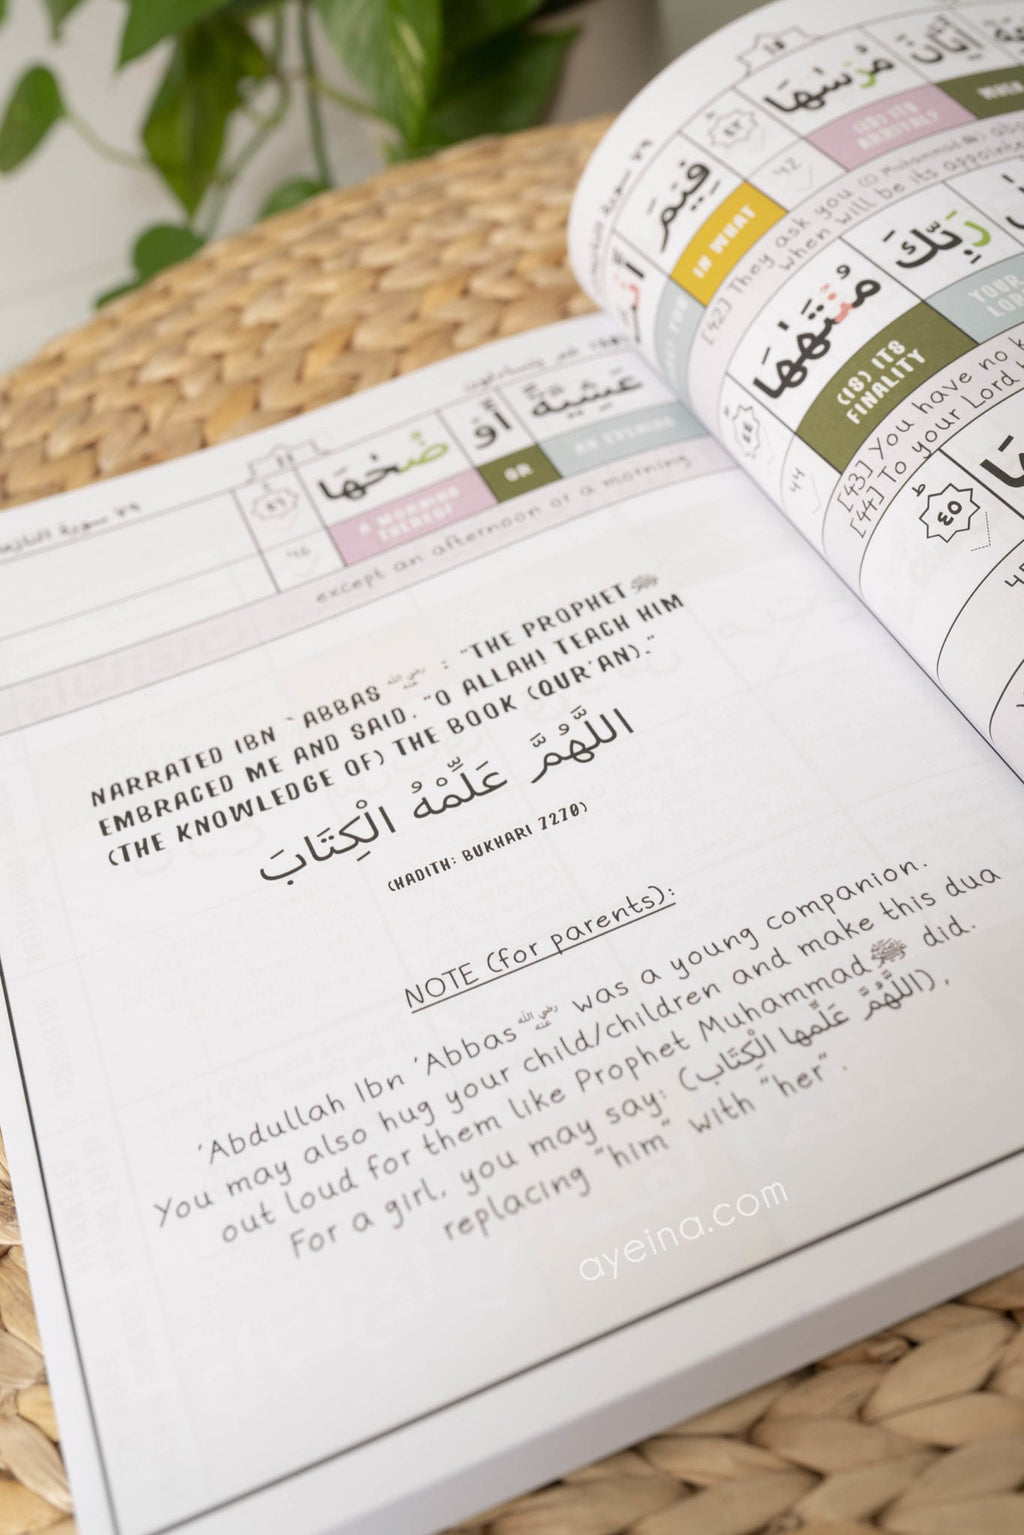 مُرْسٰىهَا أَيَّانَ
(18) ITS ARRIVAL?
WHEN
٤٢
42
فِيْمَ
IN WHAT
[42] They ask you (O Muhammad ﷺ)
when will be its
مُنْتَهٰىهَا رَبِّكَ
(18) ITS FINALITY
YOUR LORD
٤٤
44
[43] You have no
[44] To your Lord
٤٥
٧٩ سورة
عَشِيَّةً أَوْ ضُحٰىهَا
AN EVENING
OR
A MORNING THEREOF
٤٦
46
except an afternoon or a morning
NARRATED IBN `ABBAS رضي الله عنه : "THE PROPHET ﷺ
EMBRACED ME AND SAID, "O ALLAH! TEACH HIM
(THE KNOWLEDGE OF) THE BOOK (QUR'AN)."
اللَّهُمَّ عَلِّمْهُ الْكِتَابَ
(HADITH: BUKHARI 7270)
NOTE (for parents):
'Abdullah Ibn 'Abbas رضي الله عنه was a young companion.
You may also hug your child/children and make this dua
out loud for them like Prophet Muhammad ﷺ did.
For a girl, you may say: (اللَّهُمَّ عَلِّمها الْكِتَاب),
replacing "him" with "her".
ayeina.com